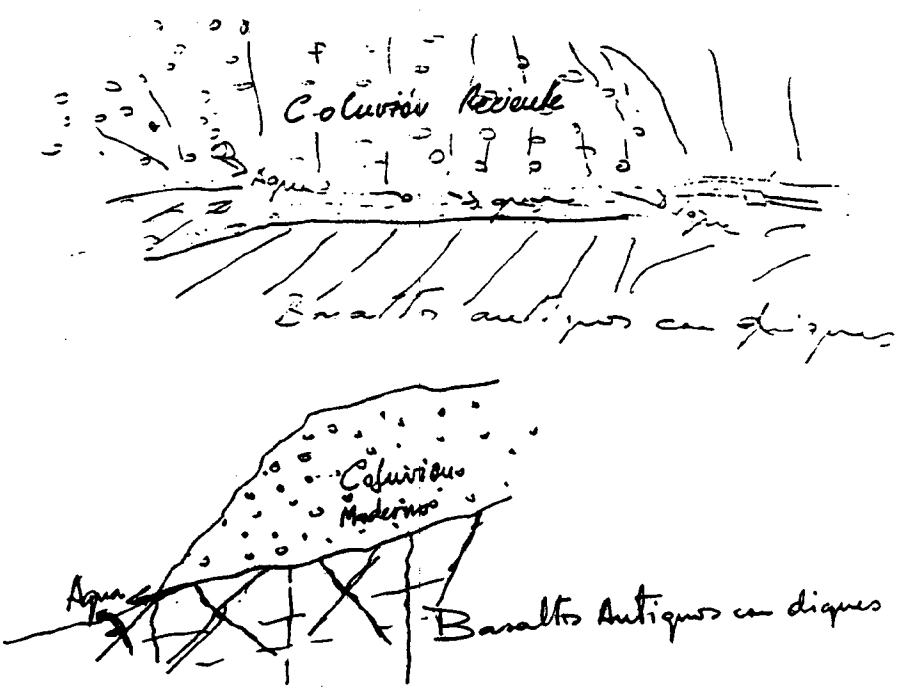 Coluvión Reciente
Agua agua agua
Basaltos antiguos con diques
Coluviones
Modernos
Agua
Basaltos Antiguos con diques